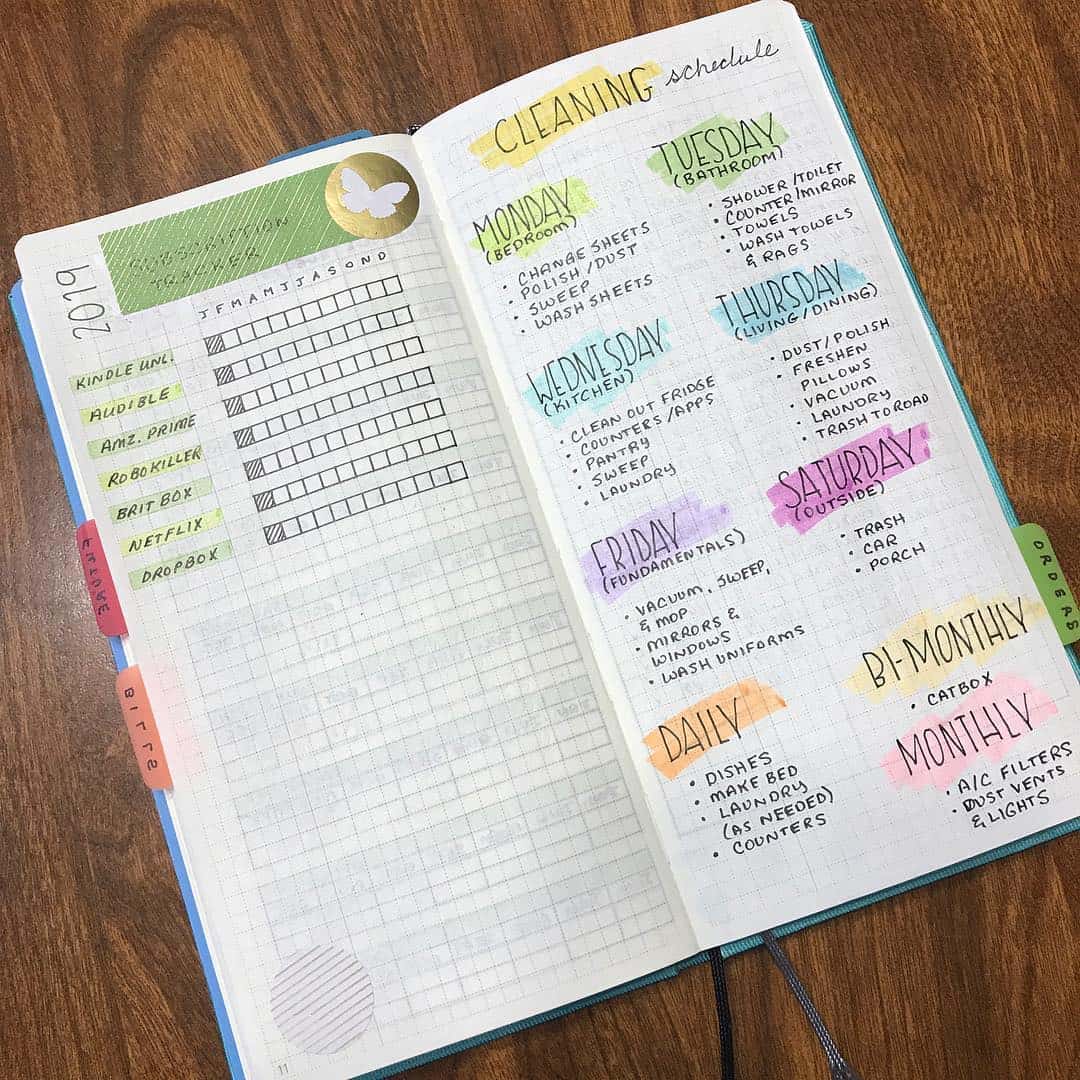 2019
SUBSCRIPTION
TRACKER
J F M A M J J A S O N D
KINDLE UNL.
AUDIBLE
AMZ. PRIME
ROBOKILLER
BRIT BOX
NETFLIX
DROPBOX
BILLS
11
CLEANING schedule
MONDAY
(BEDROOM)
• CHANGE SHEETS
• POLISH / DUST
• SWEEP
• WASH SHEETS
TUESDAY
(BATHROOM)
• SHOWER / TOILET
• COUNTER / MIRROR
• TOWELS
• WASH TOWELS
& RAGS
WEDNESDAY
(KITCHEN)
• CLEAN OUT FRIDGE
• COUNTERS / APPS
• PANTRY
• SWEEP
• LAUNDRY
THURSDAY
(LIVING / DINING)
• DUST / POLISH
• FRESHEN
PILLOWS
• VACUUM
• LAUNDRY
• TRASH TO ROAD
FRIDAY
(FUNDAMENTALS)
• VACUUM, SWEEP,
& MOP
• MIRRORS &
WINDOWS
• WASH UNIFORMS
SATURDAY
(OUTSIDE)
• TRASH
• CAR
• PORCH
DAILY
• DISHES
• MAKE BED
• LAUNDRY
(AS NEEDED)
• COUNTERS
BI-MONTHLY
• CATBOX
MONTHLY
• A/C FILTERS
• DUST VENTS
& LIGHTS
ORDERS